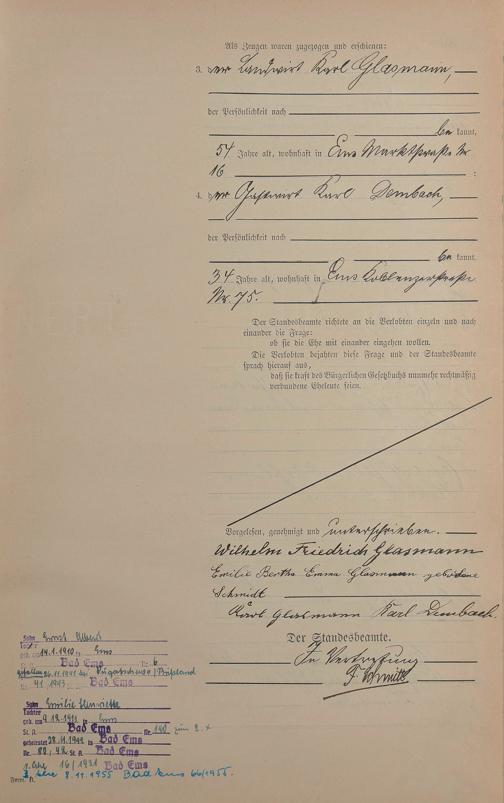 Als Zeugen waren zugezogen und erschienen:
3. der Landwirt Karl Glasmann,
der Persönlichkeit nach
be kannt,
54 Jahre alt, wohnhaft in Ems Marktstraße Nr
16 ;
4. der Gastwirt Karl Dembach,
der Persönlichkeit nach
be kannt,
34 Jahre alt, wohnhaft in Ems Koblenzerstraße
Nr. 75.
Der Standesbeamte richtete an die Verlobten einzeln und nach
einander die Frage:
ob sie die Ehe mit einander eingehen wollen.
Die Verlobten bejahten diese Frage und der Standesbeamte
sprach hierauf aus,
daß sie kraft des Bürgerlichen Gesetzbuchs nunmehr rechtmäßig
verbundene Eheleute seien.
Vorgelesen, genehmigt und unterschrieben.
Wilhelm Friedrich Glasmann
Emilie Bertha Emma Glasmann geborene
Schmidt
Karl Glasmann Karl Dembach.
Der Standesbeamte.
In Vertretung
Sohn Ernst
Tochter
geb. am 14.1.1910 in Ems
Bad Ems 6
gefallen 26.11.1941 bei / Rußland
41/1943 Bad Ems
Sohn Emilie Henriette
Tochter
geb. am 9.12.1911 in Ems
St. A. Bad Ems Nr. 140 zum 2. x
geheiratet 28.11.1942 in Bad Ems
Nr. 88/42 St. A.
1. Ehe 16/1931 Bad Ems
3. Ehe 8.11.1955 Bad Ems 66/1955.